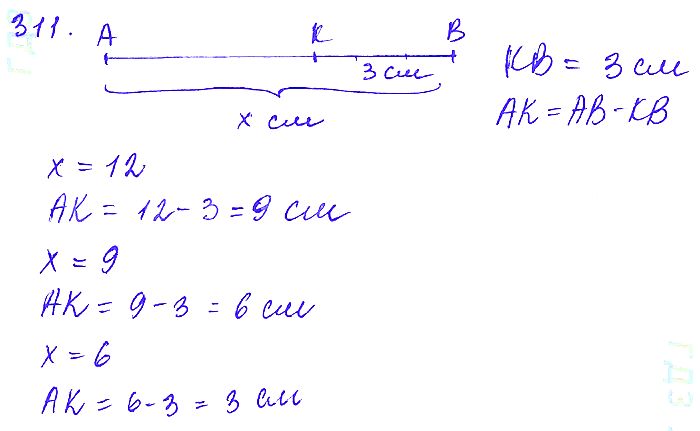 311.
A K B
3 см
x см
KB = 3 см
AK = AB - KB
x = 12
AK = 12 - 3 = 9 см
x = 9
AK = 9 - 3 = 6 см
x = 6
AK = 6 - 3 = 3 см
ГДЗ